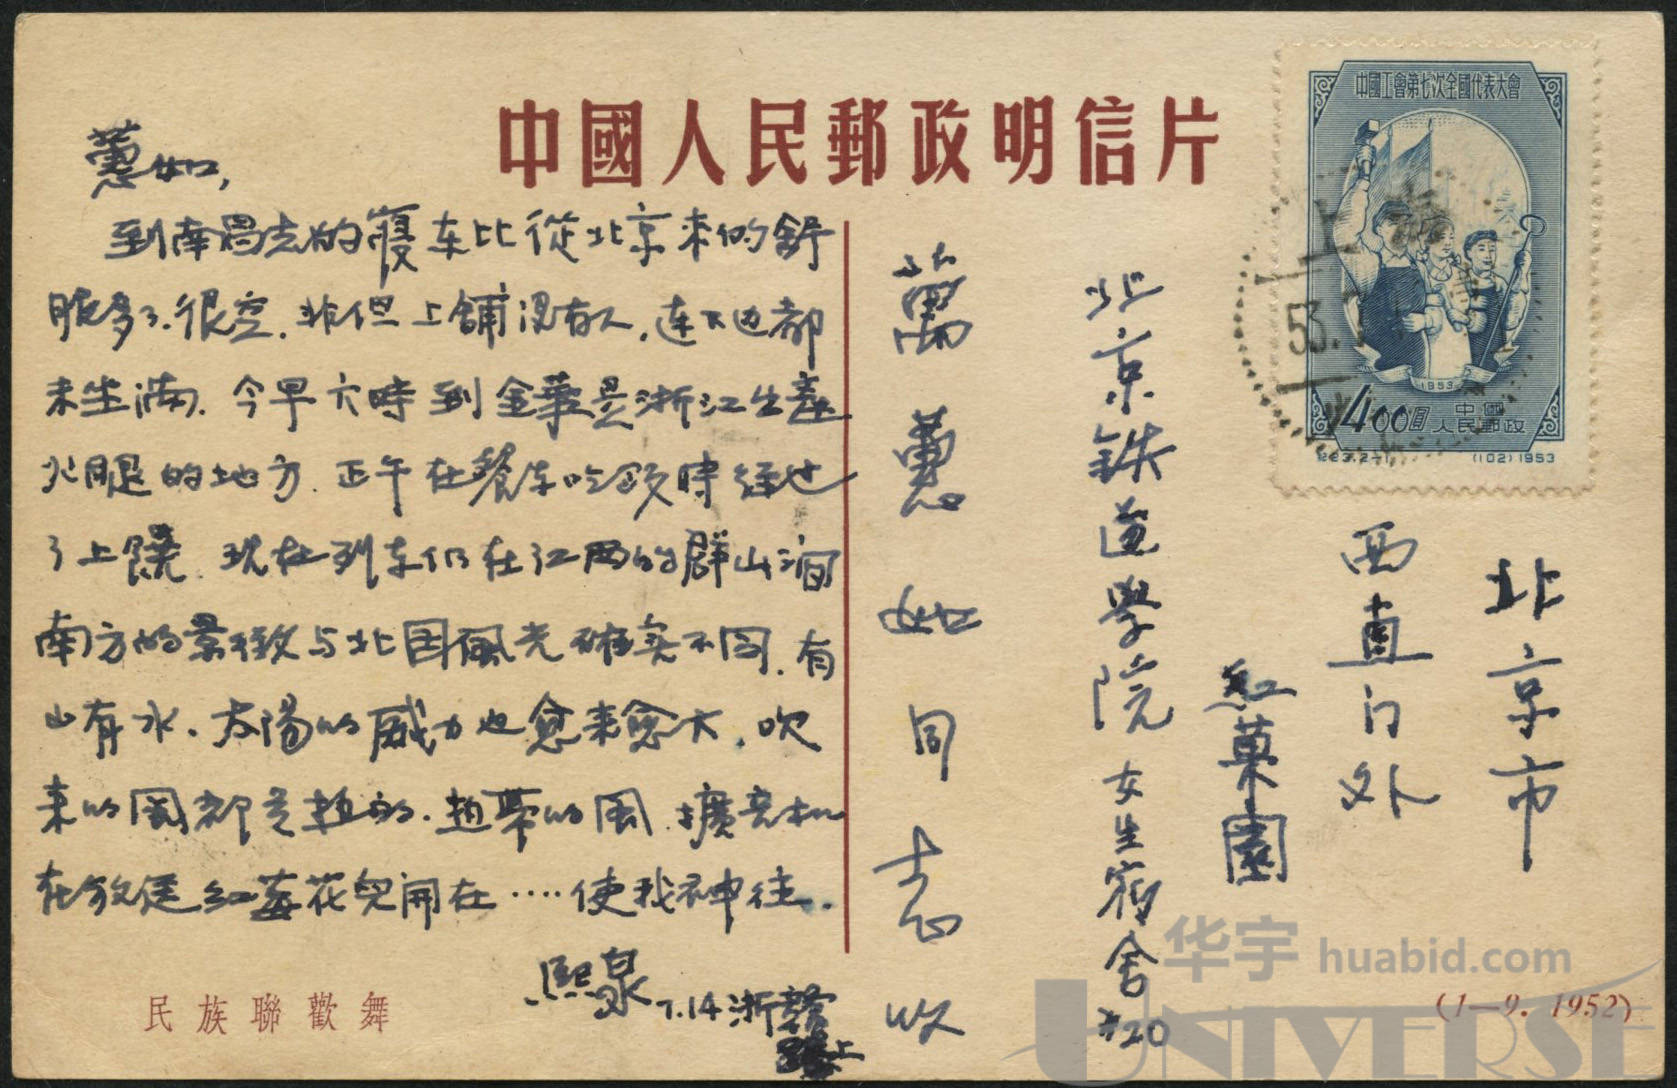 中國人民郵政明信片
蕙如,
到南昌去的寢车比從北京来的舒
服多了.很空.非但上铺没有人,连下边都
未坐满.今早六時到金華是浙江生產
火腿的地方.正午在餐车吃饭時经过
了上饒.现在列车仍在江西的群山间
南方的景緻与北国風光確实不同.有
山有水.太陽的威力也愈来愈大.吹
来的風都是热的.热带的風.擴音机
在放送红莓花兒開在……使我神往.
熙泉
7.14 浙赣
路上
民族聯歡舞
中國工會第七次全國代表大會
1953
400圓
中國
人民郵政
(102)1953
上海
53.7
北京市
西直门外
红菓園
北京鉄道學院女生宿舍#20
萬蕙如同志收
(1—9.1952)
华宇 huabid.com
UNIVERSE